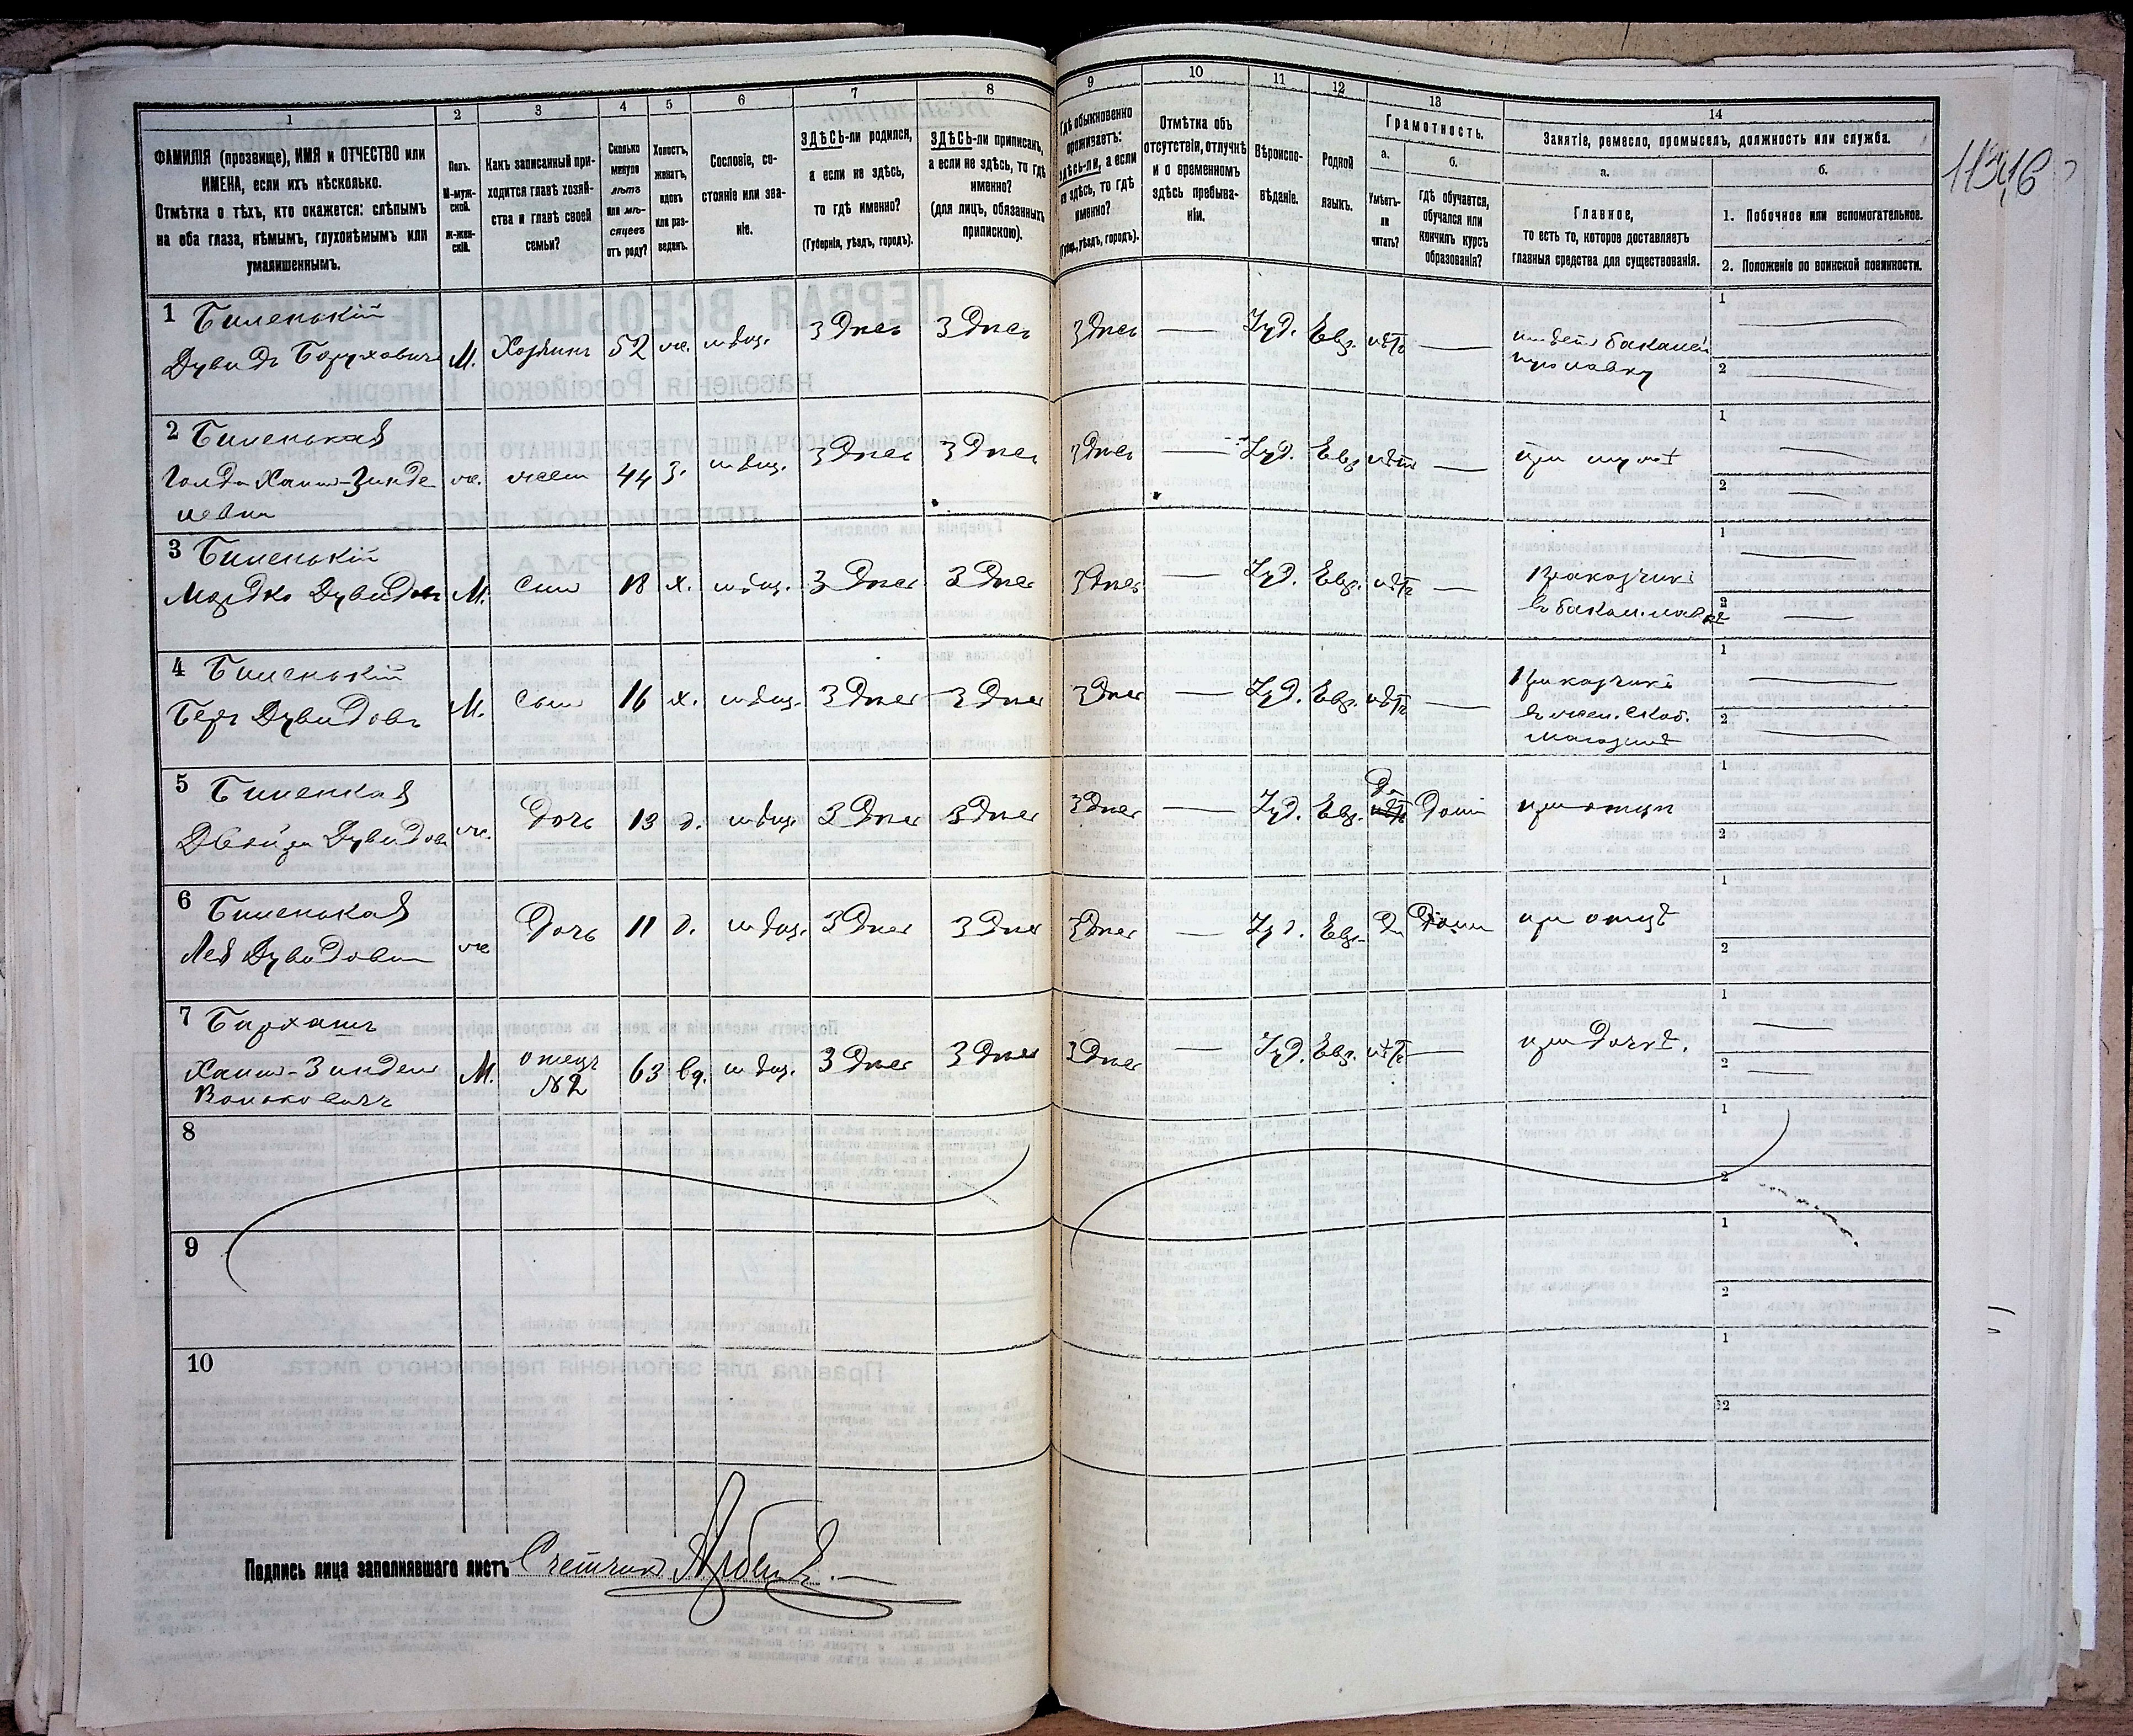 1 2 3 4 5 6 7 8 9 10 11 12 13 14
ФАМИЛІЯ (прозвище), ИМЯ и ОТЧЕСТВО или
ИМЕНА, если ихъ нѣсколько.
Отмѣтка о тѣхъ, кто окажется: слѣпымъ
на оба глаза, нѣмымъ, глухонѣмымъ или
умалишеннымъ.
Полъ.
М-муж-
ской.
Ж-жен-
скій.
Какъ записанный при-
ходится главѣ хозяй-
ства и главѣ своей
семьи?
Сколько
минуло
лѣтъ
или мѣ-
сяцевъ
отъ роду?
Холостъ,
женатъ,
вдовъ
или раз-
веденъ.
Сословіе, со-
стояніе или зва-
ніе.
ЗДѢСЬ-ли родился,
а если не здѣсь,
то гдѣ именно?
(Губернія, уѣздъ, городъ).
ЗДѢСЬ-ли приписанъ,
а если не здѣсь, то гдѣ
именно?
(для лицъ, обязанныхъ
припискою).
Гдѣ обыкновенно
проживаетъ:
здѣсь-ли, а если
не здѣсь, то гдѣ
именно?
(Губер., уѣздъ, городъ).
Отмѣтка объ
отсутствіи, отлучкѣ
и о временномъ
здѣсь пребыва-
ніи.
Вѣроиспо-
вѣданіе.
Родной
языкъ.
Грамотность.
а.
Умѣетъ-
ли
читать?
б.
Гдѣ обучается,
обучался или
кончилъ курсъ
образованія?
Занятіе, ремесло, промыселъ, должность или служба.
а.
Главное,
то есть то, которое доставляетъ
главныя средства для существованія.
б.
1. Побочное или вспомогательное.
2. Положеніе по воинской повинности.
1 Биленькій
Дувидъ Боруховичъ М. Хозяинъ 52 ж. мѣщ. Здѣсь Здѣсь Здѣсь — Іуд. Евр. нѣтъ —
1
2
2 Биленькая
Голда Хаим-Зинде
левна ж. жена 44 з. мѣщ. Здѣсь Здѣсь Здѣсь — Іуд. Евр. нѣтъ — при мужѣ
1
2
3 Биленькій
Мордко Дувидовъ М. Сынъ 18 х. мѣщ. Здѣсь Здѣсь Здѣсь — Іуд. Евр. нѣтъ — Приказчикъ
въ бакал. лавкѣ
1
2
4 Биленькій
Беръ Дувидовъ М. Сынъ 16 х. мѣщ. Здѣсь Здѣсь Здѣсь — Іуд. Евр. нѣтъ — Приказчикъ
въ жел. скоб.
магазинѣ
1
2
5 Биленкая
Двойра Дувидов ж. Дочь 13 д. мѣщ. Здѣсь Здѣсь Здѣсь — Іуд. Евр. Да Дома при отцѣ
1
2
6 Биленькая
Лея Дувидовна ж Дочь 11 д. мѣщ. Здѣсь Здѣсь Здѣсь — Іуд. Евр. Да Дома при отцѣ
1
2
7
Хаим-Зиндель М. отецъ
№2 63 вд. мѣщ. Здѣсь Здѣсь Здѣсь — Іуд. Евр. нѣтъ — при дочкѣ.
1
2
8
1
2
9
1
2
10
1
2
Подпись лица заполнявшаго листъ Счетчикъ